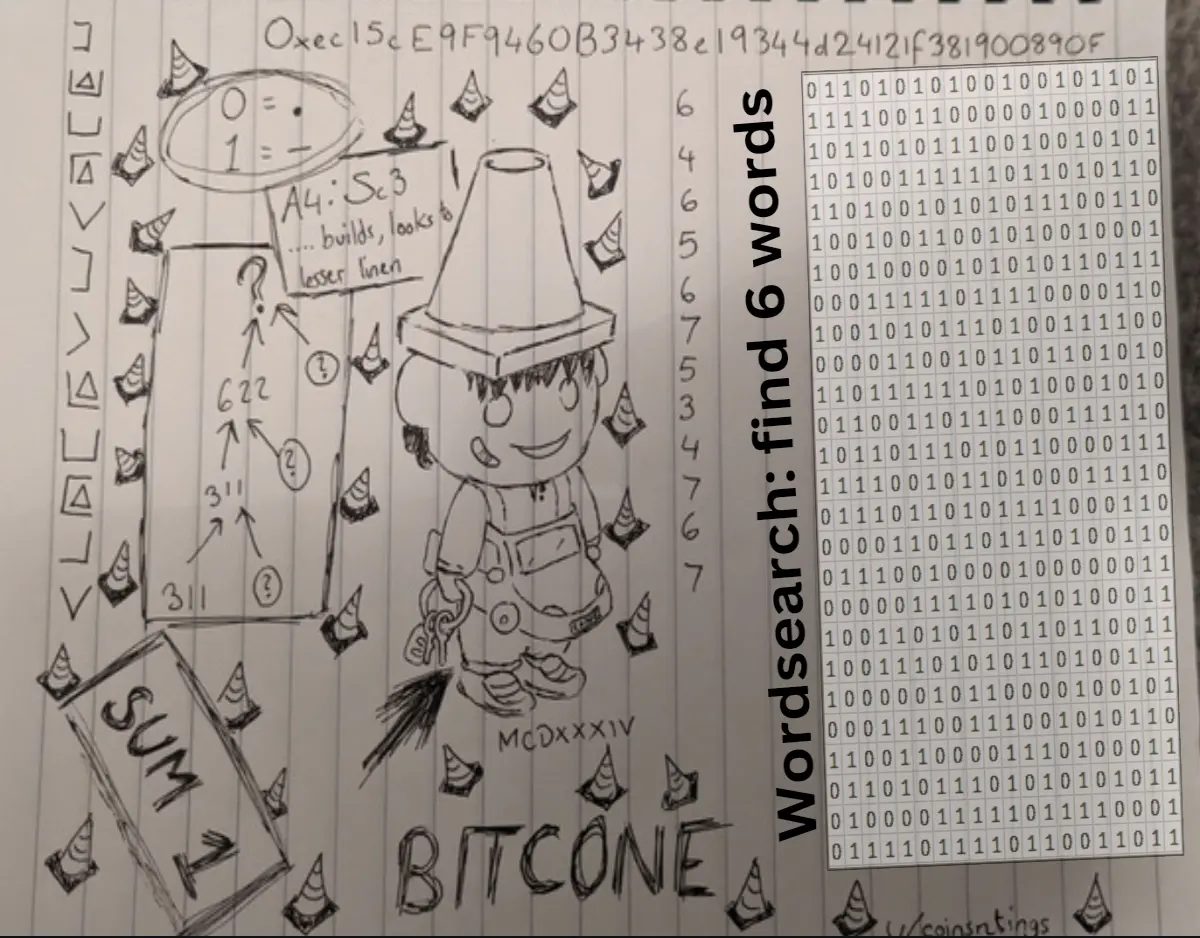 0xec15cE9F9460B3438e19344d24121f381900890F
0 = .
1 = –
A4: Sc3
.... builds, looks to
lesser linen
?
?
622
?
311
311
?
SUM 1
MCDXXXIV
BITCONE
6
4
6
5
6
7
5
3
4
7
6
7
Wordsearch: find 6 words
01101010100100101101
11110011000001000011
10110101110010010101
10100111111011010110
11010010101011100110
10010011001010010001
10010000101010110111
00011111011110000110
10010101110100111100
00001100101101101010
110111111101010001010
01100110111000111110
1011011101010110000111
11110010110101000 11110
01110110101111000110
00001101101110100110
01110010000100000011
00000111101010100011
10011010110110110011
10011101010110100111
10000010110000100101
00011100111001010110
11001100001110100011
01101011101010101011
01000011111011110001
01111011110110011011
u/coinsntings